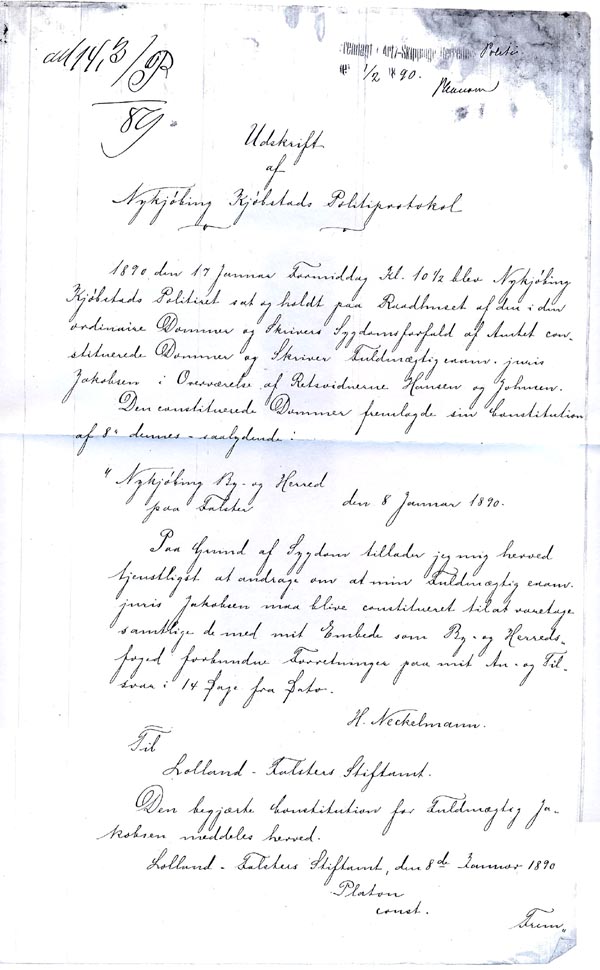 ad 14,3/P
89.
Politi
1/2 90.
Udskrift
af
Nykjöbing Kjöbstads Politiprotokol
1890 den 17 Januar Formiddag Kl. 10 1/2 blev Nykjöbing
Kjöbstads Politiret sat og holdt paa Raadhuset af den i den
ordinaire Dommer og Skrivers Sygdomsforfald af Amtet con-
stituerede Dommer og Skriver Fuldmægtig exam. juris
Jakobsen i Overværelse af Retsvidnerne Hansen og Johnsen.
Den constituerede Dommer fremlagde sin Constitution
af 8de dennes - saalydende:
"Nykjöbing By- og Herred
paa Falster den 8 Januar 1890.
Paa Grund af Sygdom tillader jeg mig herved
tjenstligst at andrage om at min Fuldmægtig exam.
juris Jakobsen maa blive constitueret til at varetage
samtlige de med mit Embede som By- og Herreds-
foged forbundne Forretninger paa mit An- og Til-
svar i 14 Dage fra Dato.
H. Neckelmann.
Til
Lolland - Falsters Stiftamt.
Den begjærte Constitution for Fuldmægtig Ja-
kobsen meddeles herved.
Lolland - Falsters Stiftamt, den 8de Januar 1890
Platon
const.
Frem„